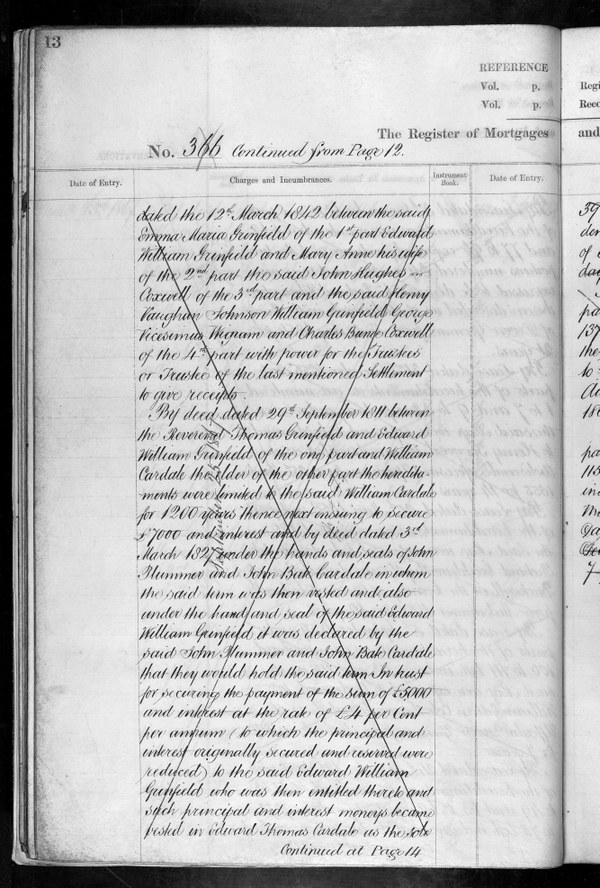 13
REFERENCE
Vol. p.
Vol. p.
The Register of Mortgages
No. 366 Continued from Page 12.
Date of Entry.
Charges and Incumbrances.
Instrument Book.
Date of Entry.
dated the 12th March 1842 between the said
Emma Maria Grinfield of the 1st part Edward
William Grinfield and Mary Anne his wife
of the 2nd part the said John Hughes
Coxwell of the 3rd part and the said Henry
Vaughan Johnson William Grinfield George
Vicesimus Wigram and Charles Coxwell
of the 4th part with power for the Trustees
or Trustee of the last mentioned Settlement
to give receipts.
By deed dated 29th September 1811 between
the Reverend Thomas Grinfield and Edward
William Grinfield of the one part and William
Cardale the elder of the other part the heredita-
ments were limited to the said William Cardale
for 1200 years thence next ensuing to secure
£7000 and interest and by deed dated 3rd
March 1827 under the hands and seals of John
Plummer and John Bate Cardale in whom
the said term was then vested and also
under the hand and seal of the said Edward
William Grinfield it was declared by the
said John Plummer and John Bate Cardale
that they would hold the said term In trust
for securing the payment of the sum of £5000
and interest at the rate of £4 per Cent
per annum (to which the principal and
interest originally secured and reserved were
reduced) to the said Edward William
Grinfield who was then entitled thereto and
such principal and interest moneys became
vested in Edward Thomas Cardale as the sole
Continued at Page 14
Regi
Reco
and